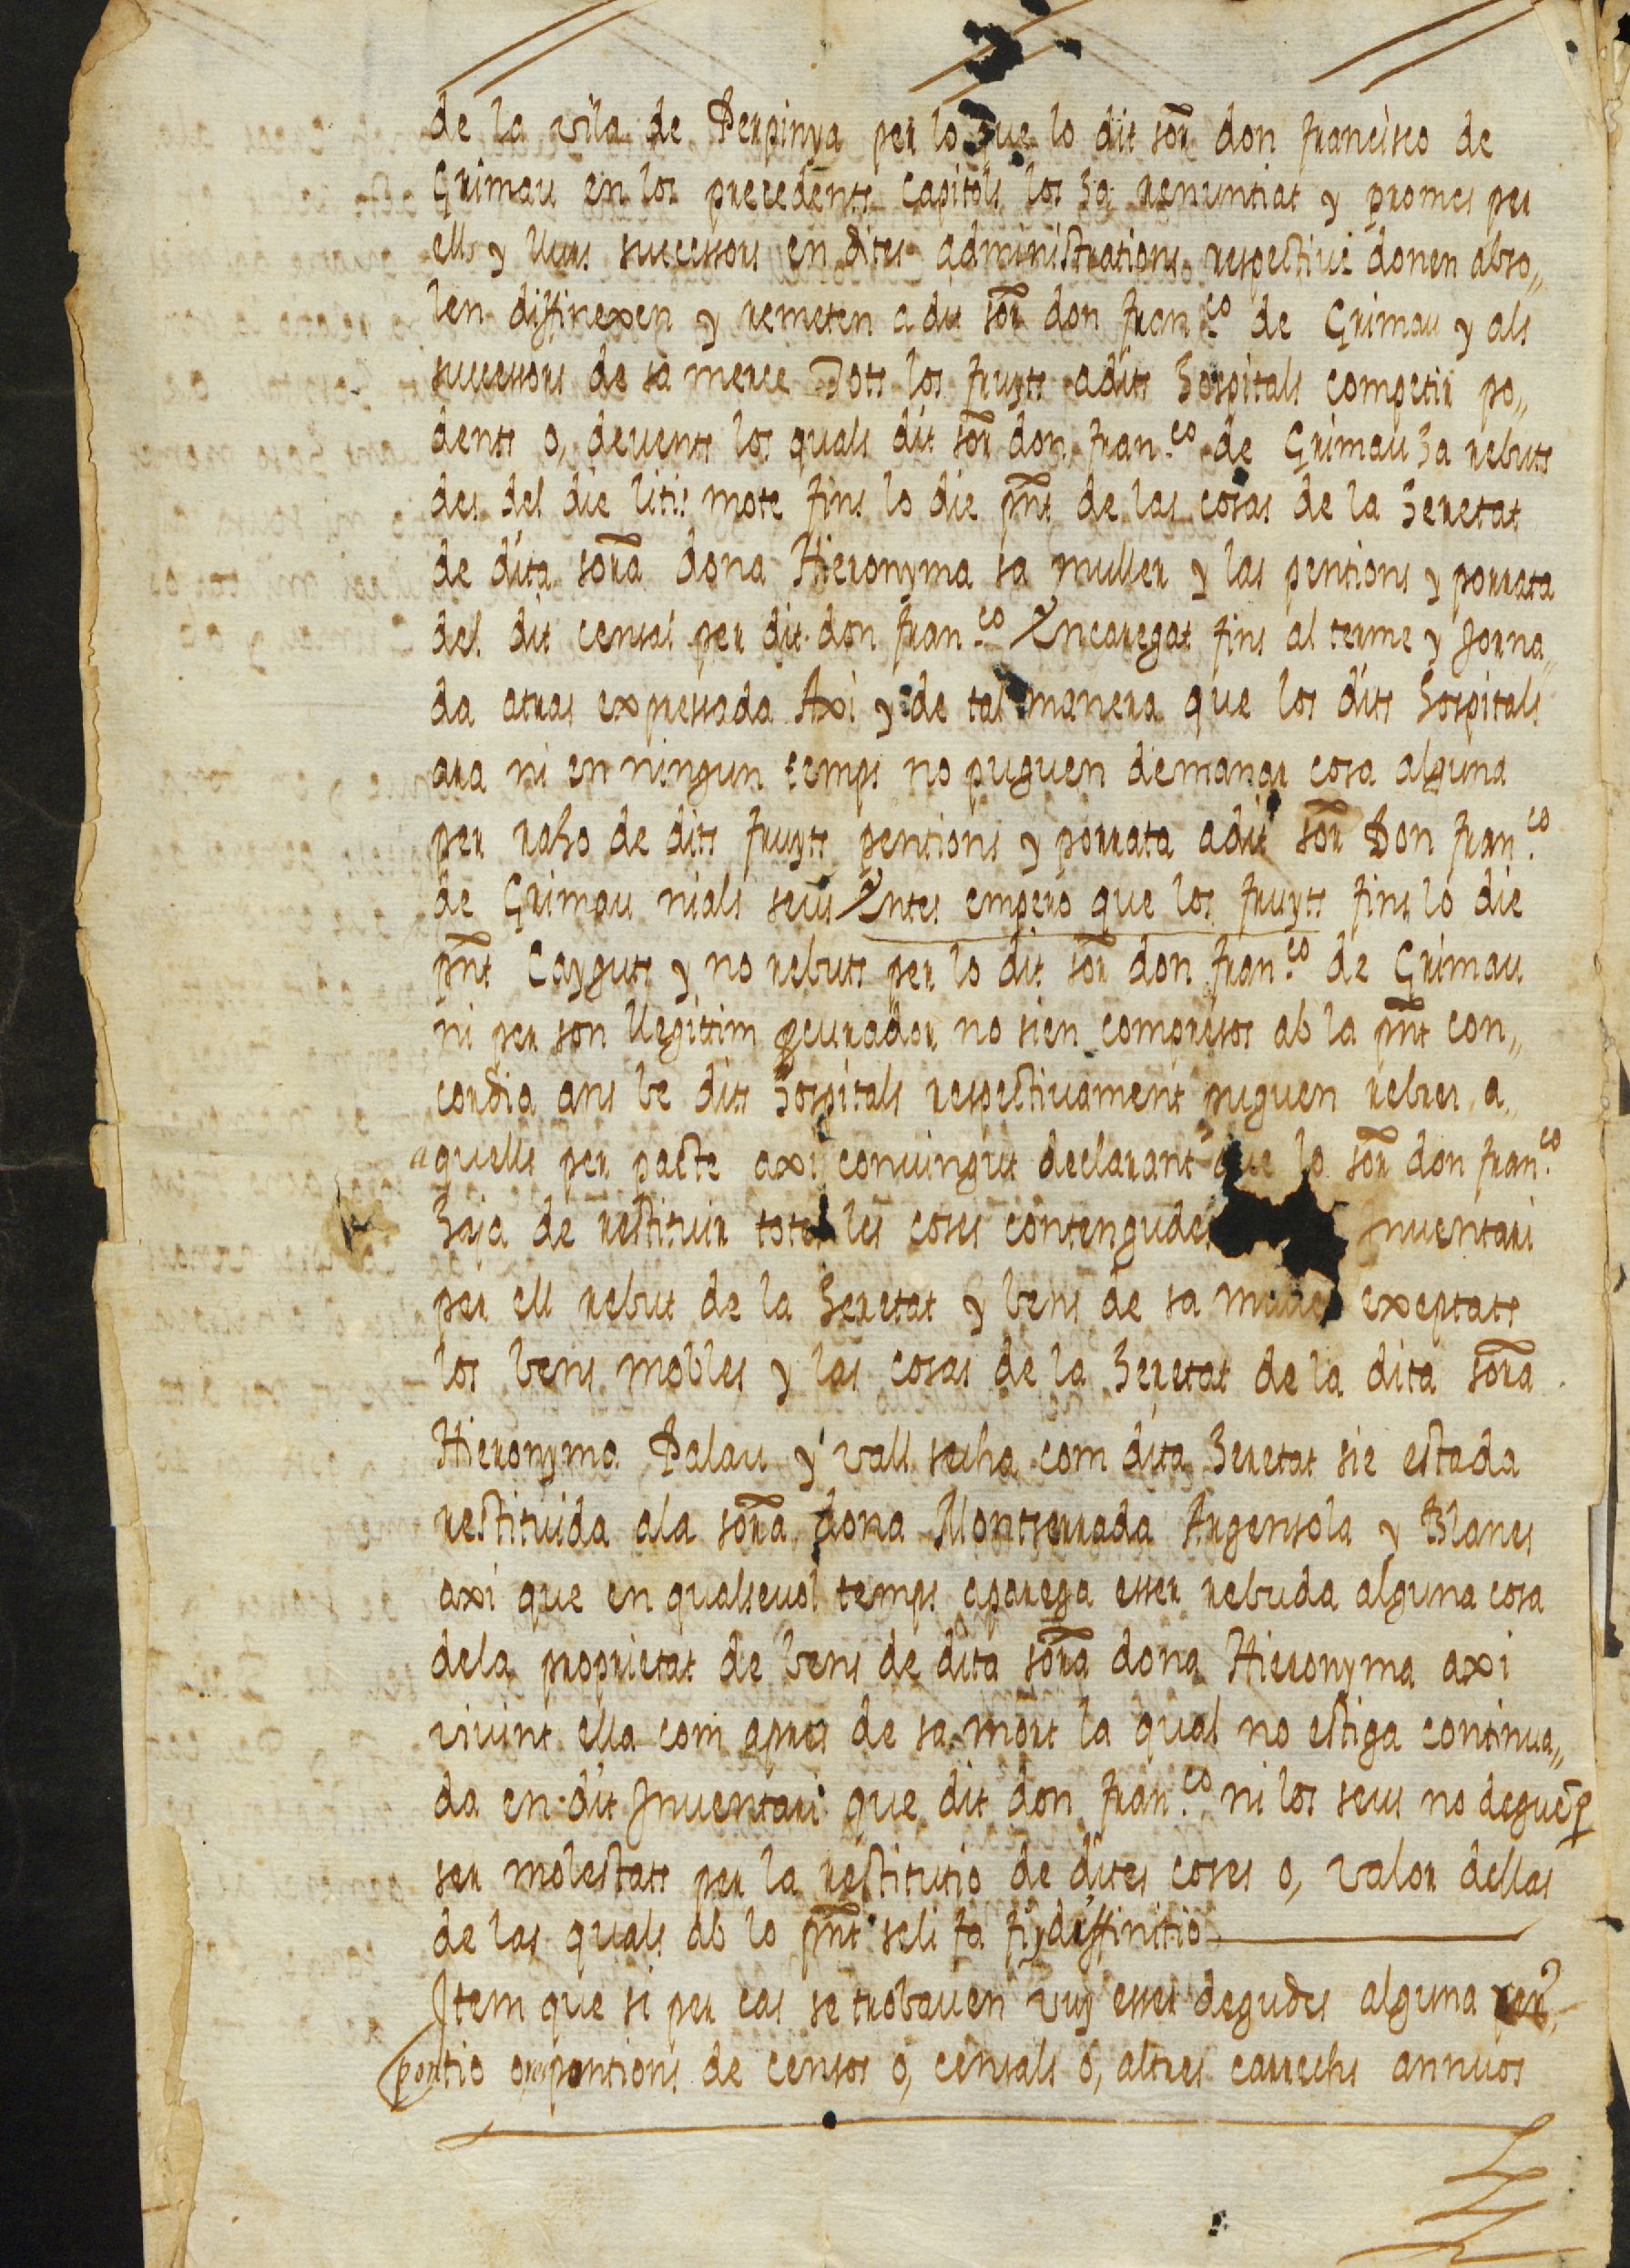 de la vila de Perpinya per lo que lo dit sor don francisco de
Grimau en los precedents capitols los ha renuntiat y promes per
ells y llurs successors en dites administrations respective donen abso„
len diffinexen y remeten a dit sor don fran.co de Grimau y als
successors de sa merce Tots los fruyts adits hospitals competir po„
dents o, devents los quals dit sor don fran.co de Grimau ha rebuts
des del die litis mote fins lo die pnt de las cosas de la heretat
de dita sora dona Hieronyma sa muller y las pentions y porrata
del dit censal per dit don fran.co Encaregat fins al terme y Jorna„
da atras expressada Axi y de tal manera que los dits hospitals
ara ni en ningun temps no puguen demanar cosa alguna
per raho de dits fruyts pentions y porrata adit sor Don fran.co
de Grimau nials seus Entes empero que los fruyts fins lo die
pnt Cayguts y no rebuts per lo dit sor don fran.co de Grimau
ni per son llegitim pcurador no sien compresos ab la pnt con„
cordia ans be dits hospitals respectivament puguen rebrer a„
aquells per pacte axi convingut declarant que lo sor don fran.co
haja de restituir totes les coses contengudes Inventari
per ell rebut de la heretat y bens de sa muller exeptats
los bens mobles y las cosas de la heretat de la dita sora
Hieronyma Palau y vall secha com dita heretat sie estada
restituida ala sora dona Montserrada Argensola y Blanes
axi que en qualsevol temps aparega esser rebuda alguna cosa
dela proprietat de bens de dita sora dona Hieronyma axi
vivint ella com apres de sa mort la qual no estiga continua„
da en dit Inventari que dit don fran.co ni los seus no degue
ser molestats per la restitutio de dites coses o, valor dellas
de las quals ab lo pnt seli fa fi y diffinitio
Item que si per cas se trobaven vuy esser degudes alguna
portio o portions de censos o, censals o, altres carrechs annuos